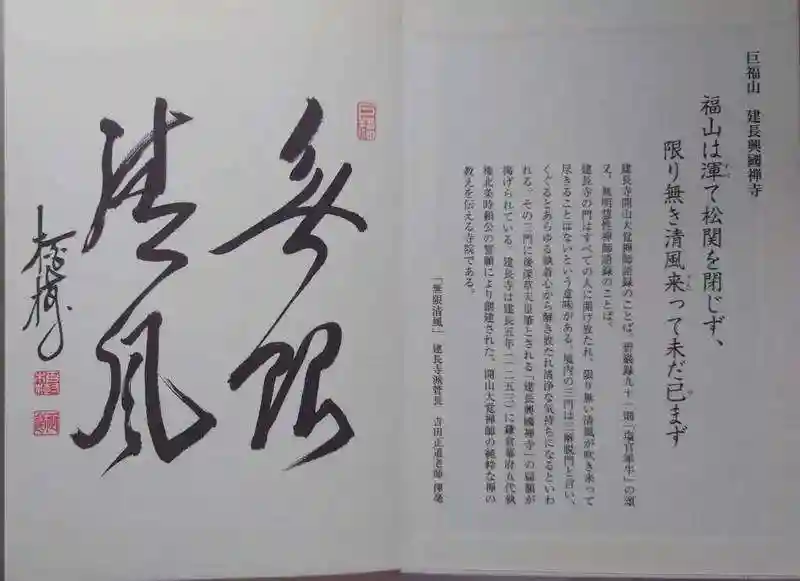 巨福山　建長興國禅寺
福山は渾て松関を閉じず、
限り無き清風来って未だ已まず
建長寺開山大覚禅師語録のことば。碧巌録九十一則「塩官犀牛」の頌
又、無明慧性禅師語録のことば。
建長寺の門はすべての人に開け放たれ、限り無い清風が吹き来って
尽きることはないという意味がある。境内の三門は三解脱門と言い、
くぐるとあらゆる執着心から解き放たれ清浄な気持ちになるといわ
れる。その三門に後深草天皇筆とされる「建長興國禅寺」の扁額が
掲げられている。建長寺は建長五年(一二五三)に鎌倉幕府五代執
権北条時頼公の誓願により創建された。開山大覚禅師の純粋な禅の
教えを伝える寺院である。
「無限清風」　建長寺派管長　吉田正道老師 揮毫
無限
清風